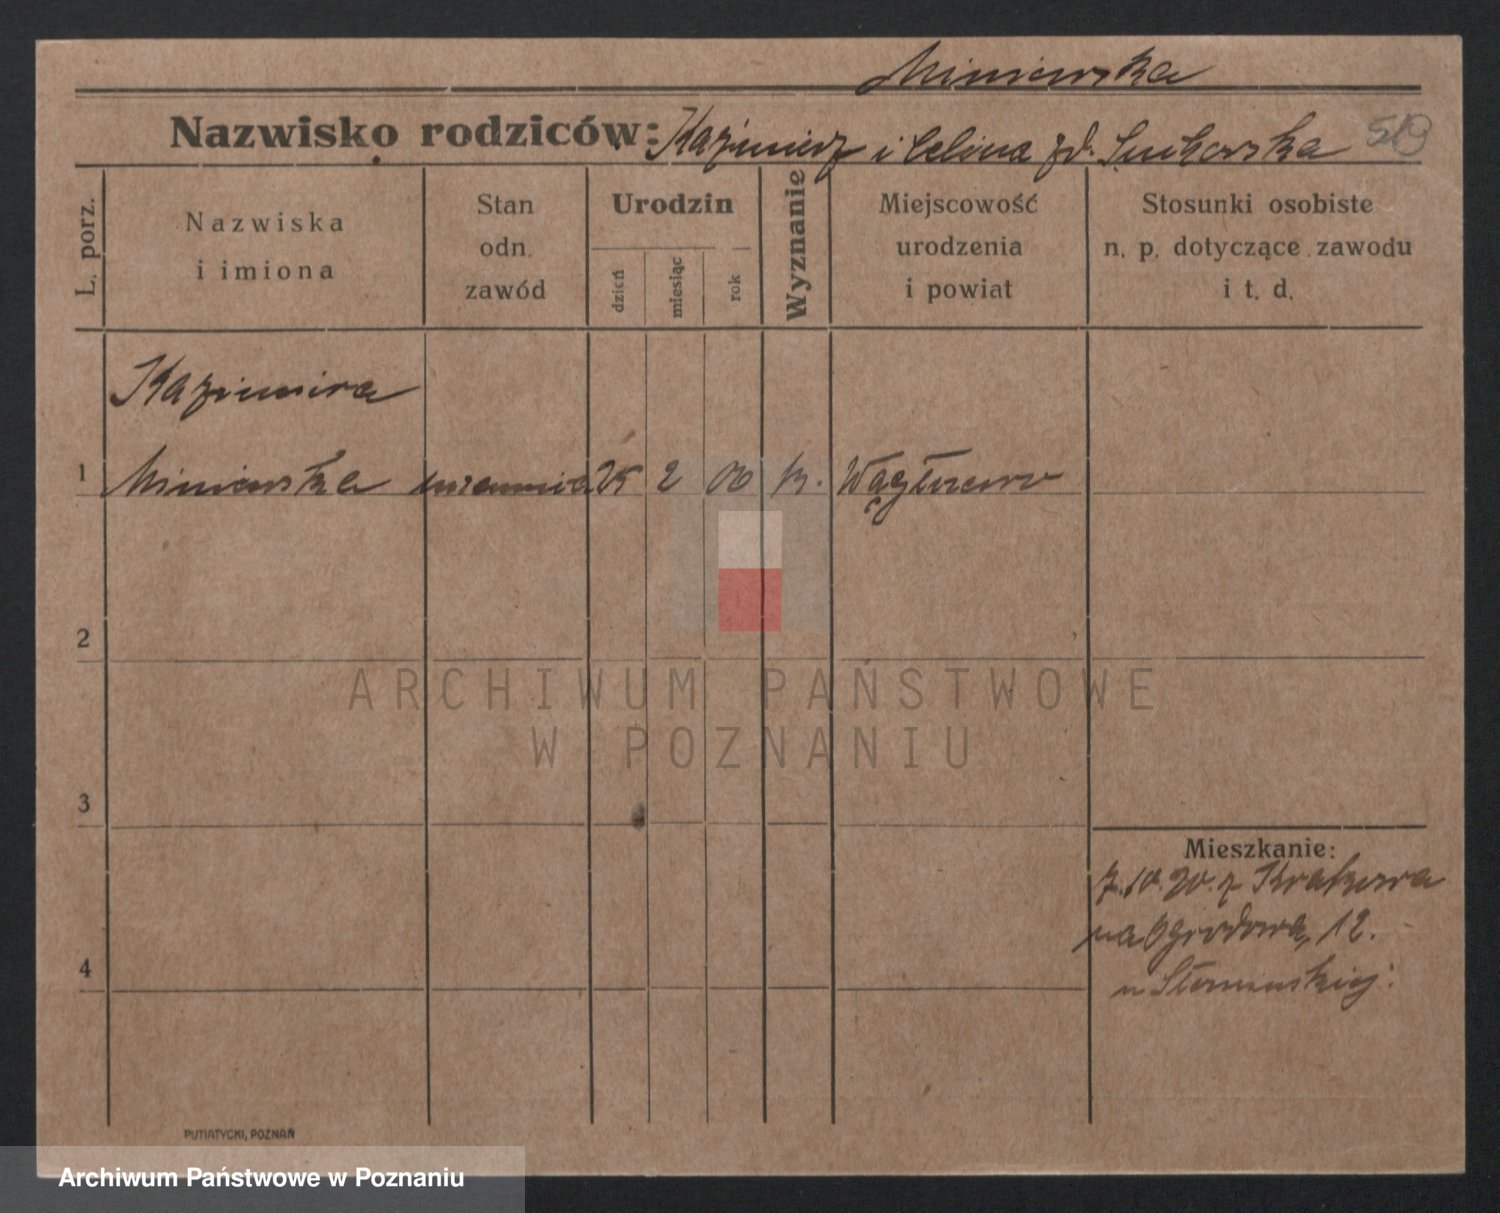 Miniewska
Nazwisko rodziców: Kazimierz i Celina zd.
L. porz.
Nazwiska
i imiona
Stan
odn.
zawód
Urodzin
dzień
miesiąc
rok
Wyznanie
Miejscowość
urodzenia
i powiat
Stosunki osobiste
n. p. dotyczące zawodu
i t. d.
Kazimira
1 Miniewska uczennica 25 2 00 k.
2
3
4
Mieszkanie:
7.10.20. z Krakowa
na Ogrodową, 12.
ARCHIWUM PAŃSTWOWE
W POZNANIU
PUTIATYCKI, POZNAŃ
Archiwum Państwowe w Poznaniu